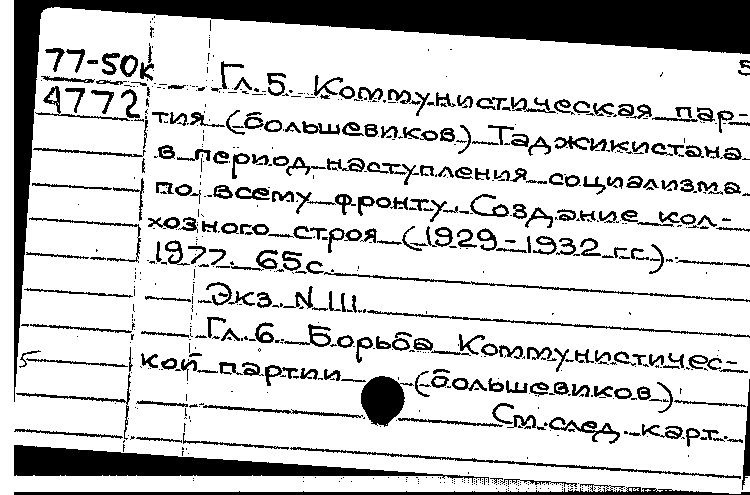 5
77-50к
4772
Гл.5. Коммунистическая пар-
тия (большевиков) Таджикистана
в период наступления социализма
по всему фронту. Создание кол-
хозного строя (1929-1932 гг.).
1977. 65с.
Экз. N III.
Гл.6. Борьба Коммунистичес-
5
кой партии (большевиков)
См.след. карт.